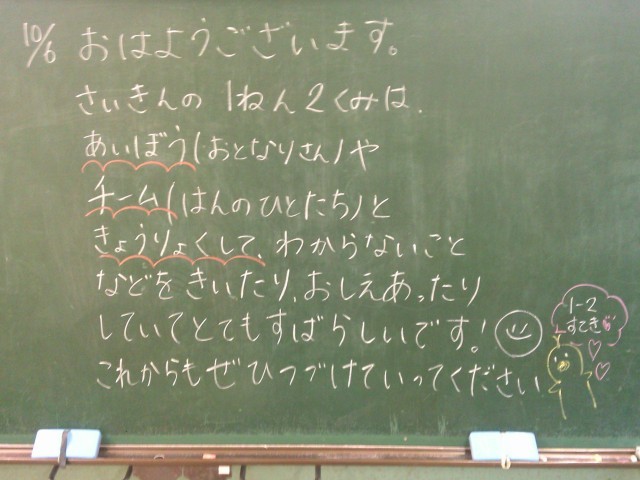 10/6 おはようございます。
さいきんの 1ねん2くみは、
あいぼう(おとなりさん)や
チーム(はんのひとたち)と
きょうりょくして、わからないこと
などをきいたり、おしえあったり
していてとてもすばらしいです!
これからもぜひつづけていってください
1-2
すてき